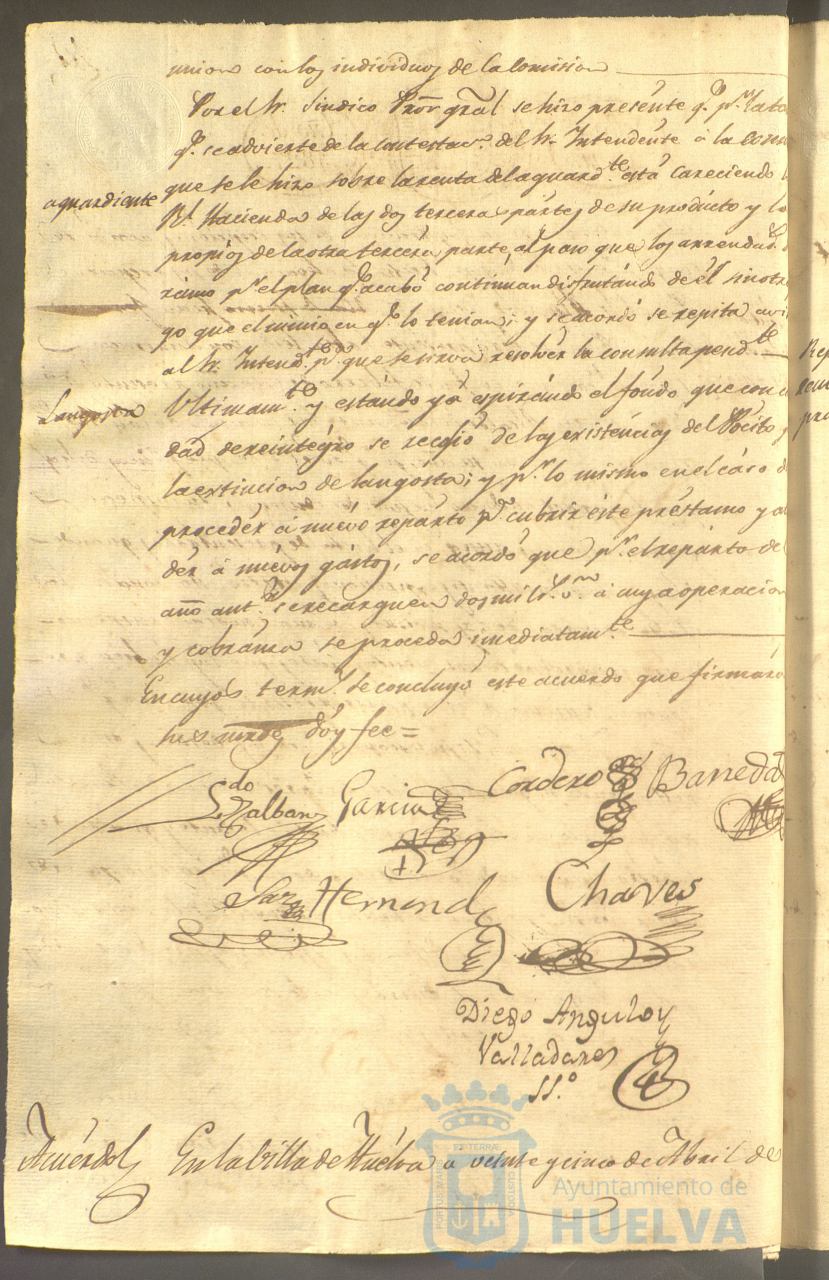 union con los individuos de la Comision
Por el Sr. Sindico Pror. gral se hizo presente q.e p.r la
q.e se advierte de la contestac.n del Sr. Intendente á la
que se le hizo sobre la renta del aguard.te está careciendo
aguardiente
R.l Hacienda de las dos terceras partes de su producto y
propios de la otra tercera parte, al paso que los arrendad.
ramo p.r el plan q.e acabó continúan disfrutándo de él sin otro
go que el mismo en q.e lo tenian; y se acordó se repita
al Sr. Intend.te p.a que se sirva resolver la consulta pend.te
Langosta
Ultimam.te y estándo ya espirándo el fóndo que con
dad de reintégro se recojió de las existéncias del Pósito
la extincion de langósta; y p.r lo mismo en el cáso
procedér á nuévo repárto p.a cubrir éste préstamo y
der á nuévos gástos, se acordó que p.r el repárto de
año ant.r se recarguen dos mil r.s v.n á cuya operacion
y cobránza se procéda imediatam.te
En cuyos term.s se concluyó este acuerdo que firmaro
doy fee=
L.do Zalban Garcia Cordero Barreda
Saz Hernand.z Chaves
Diego Angulo y
Valladares
SS.o
Acuérdo En la Villa de Huélva a veinte y cinco de Abril de
PORTUS MARIS ET TERRAE CUSTODIA
Ayuntamiento de
HUELVA